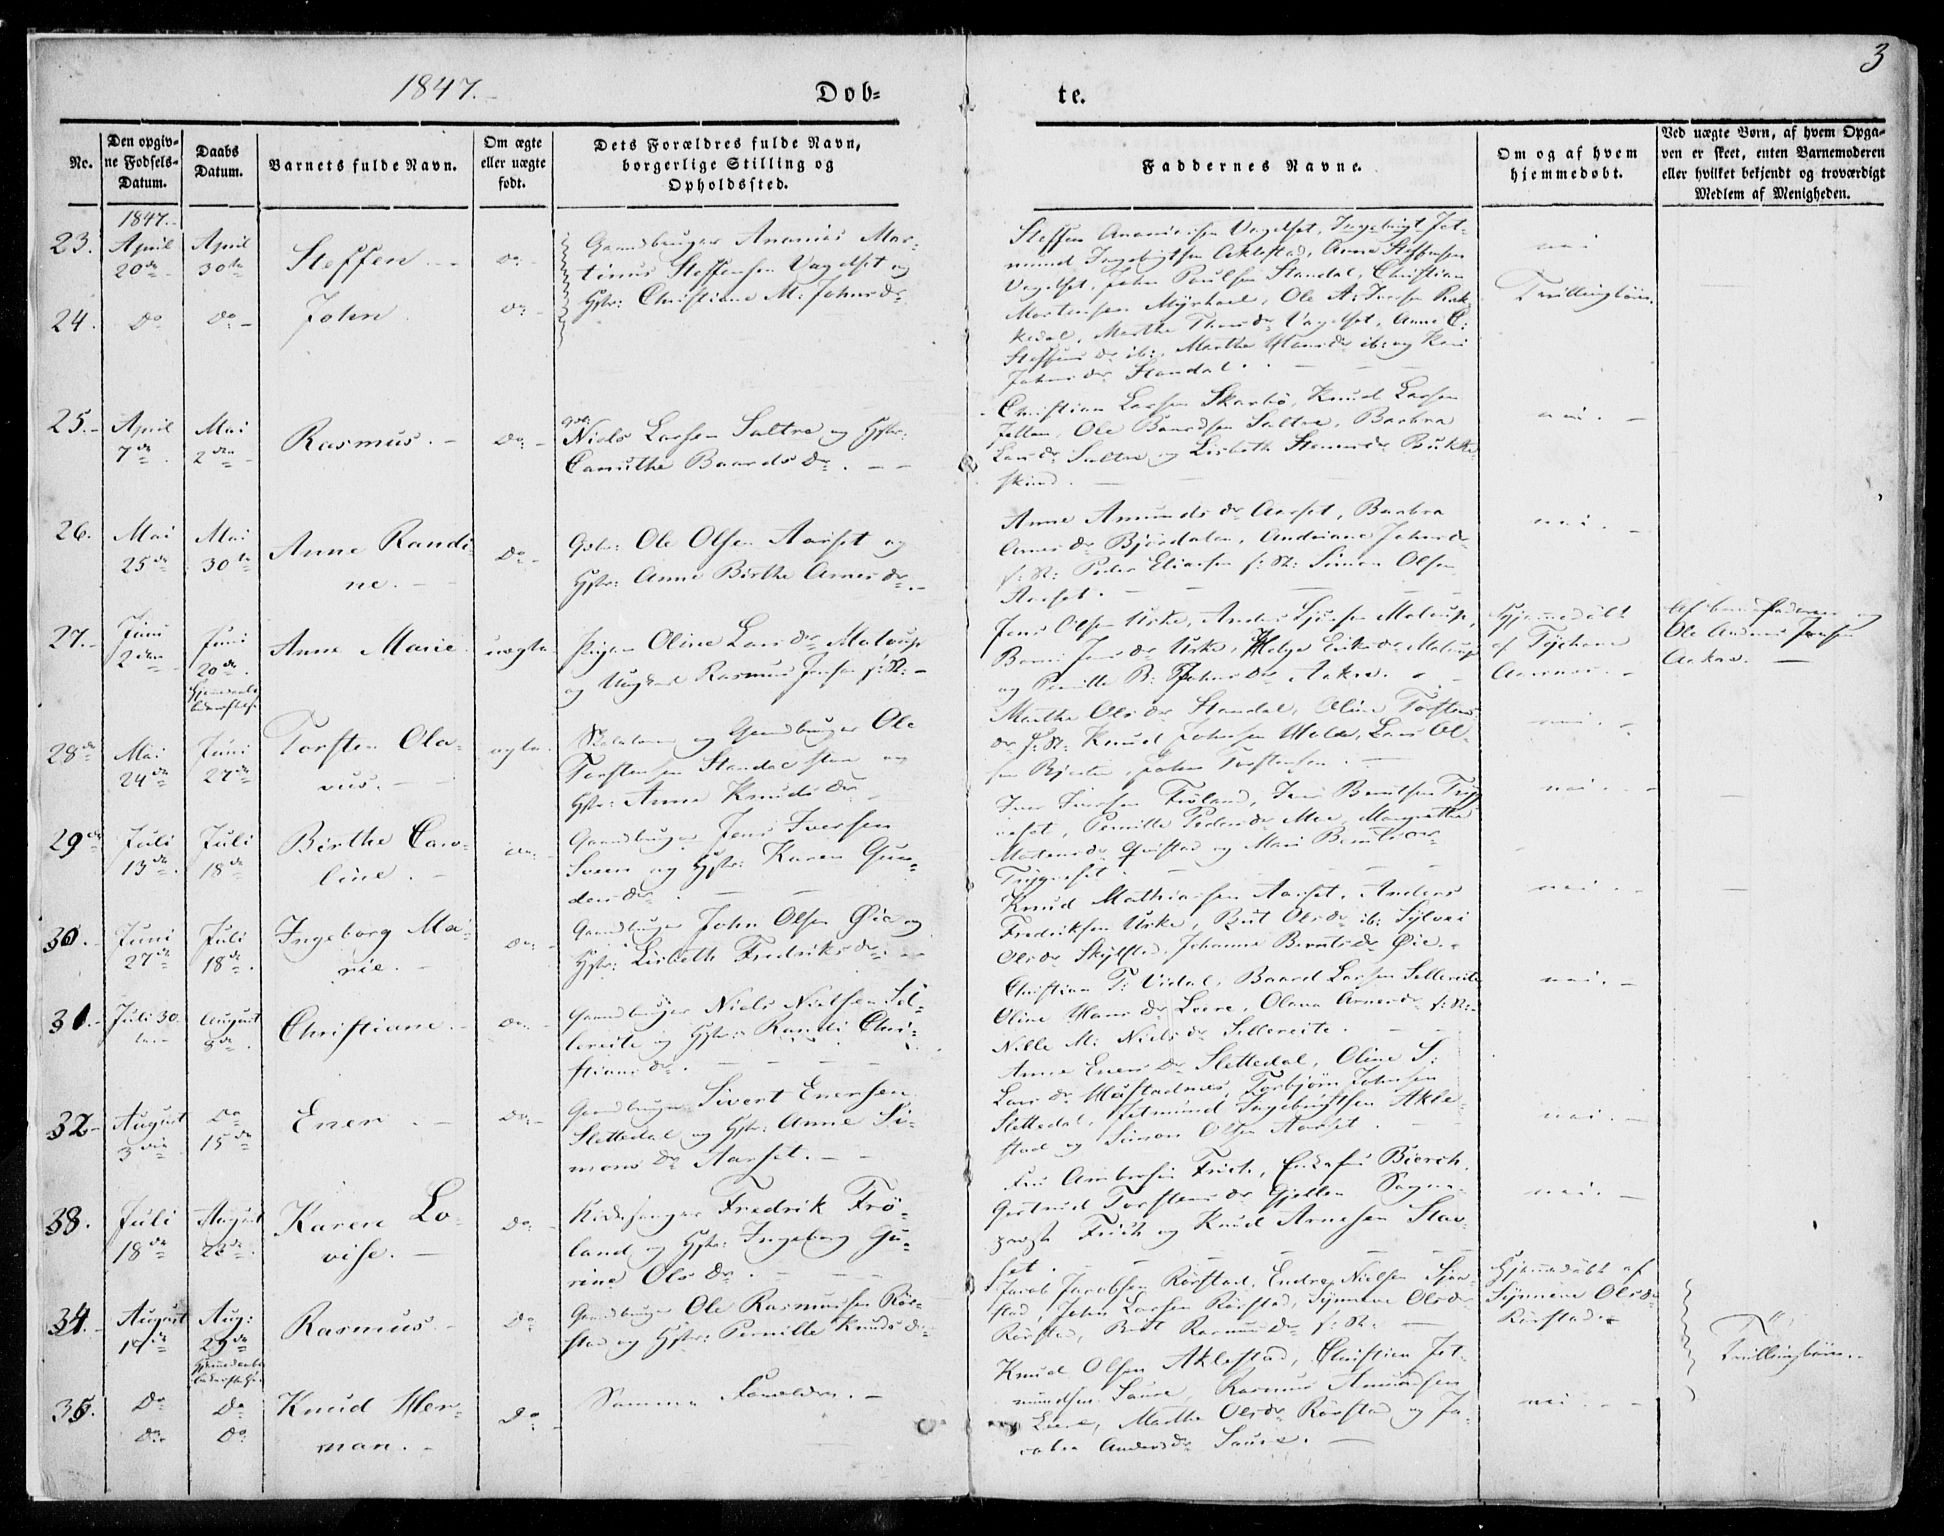 3
1847.
Dob-
te.
No.
Den opgiv-
ne Fødsels-
Datum.
Daabs
Datum.
Barnets fulde Navn.
Om ægte
eller uægte
født.
Dets Forældres fulde Navn,
borgerlige Stilling og
Opholdssted.
Faddernes Navne.
Om og af hvem
hjemmedøbt.
Ved uægte Børn, af hvem Opga-
ven er skeet, enten Barnemoderen
eller hvilket bekjendt og troværdigt
Medlem af Menigheden.
1847.
23.
April
20de
April
30te
Steffen
Do
Gaardbruger Ananias Mar-
tinus Steffensen Vagelset og
Hstr: Christiane M: Johnsdr
Steffen Ananiassen Vagelset, Ingebrigt Jet-
mund Ingebrigtsen Aklestad, Anne Steffensen
Vagelset, John Poulsen Standal, Christian
Mortensen Myrhoel, Ole A: Iversen Rek-
kedal, Marthe Vagelset, Anne C:
Steffensdr ib:, Marthe Hansdr ib: og Kari
Johnsdr Standal.
nei
Tvillingbørn.
24.
Do
Do
John
Do
25.
April
7de
Mai
2den
Rasmus.
Do
Niels Larsen Saltre og Hstr:
Canuthe Baardsdr.
Christian Larsen Skarbø, Knud Larsen
Ole Baardsen Saltre, Barbra
Larsdr Saltre og Lisbeth Bukke-
skind.
nei.
26.
Mai
25de
Mai
30te
Anne Randi
ne.
Do
Gbr: Ole Olsen Aarset og
Hstr: Anne Birthe Arnesdr.
Anne Amundsdr Aarset, Barbra
Arnesdr Bjørdalen, Andriane Johnsdr
f: St: Peder Eliassen f: St: Simon Olsen
Aarset.
nei.
27.
Juni
2den
Juni
20de
Anne Marie
uægte
Pigen Oline Larsdr
og Ungkarl Rasmus Jensen f: St:
Jens Olsen Urke, Anders
Jensdr Urke, Helge
og Pernille B: Johnsdr Aakre.
Hjemmedøbt
af
Aarnes.
Af barnefaderen og
Ole Andreas Jensen
Aakre.
28de
Mai
24de
Juni
27de
Torsten Ola-
vus.
ægte.
og Gaardbruger Ole
Torstensen Standal og
Hstr: Anne Knudsdr
Marthe Olsdr Standal, Oline Torstens
dr f: St: Knud Johnsen Lars Ol-
sen John Torstensen.
nei.
29de
Juli
13de
Juli
18de
Birthe Caro-
line.
Do
Gaardbruger Jens Iversen
Sveen og Hstr: Karen Gun-
dersdr.
Iver Iversen Frøland,
Pernille Pedersdr Moe, Margrethe
Mortensdr Qvistad og
nei.
30.
Juni
27de
Juli
18de
Ingeborg Ma-
rie.
Do
Gaardbruger John Olsen Øie og
Hstr: Lisbeth Fredriksdr.
Knud Mathiassen Aarset, Anders
Fredriksen Urke, Brit Olsdr ib: Sylvei
Olsdr Skylstad, Johanne Berntsdr Øie.
nei.
31.
Juli 30
August
8de
Christiane.
Do
Gaardbruger Niels Nielsen Sel-
lereite og Hstr: Randi Chri-
stiansdr.
Christian T: Vidal, Baard Larsen Sellereite
Oline Hansdr Leere, Olava Arnesdr f: St:
Nille M: Nielsdr Sellereite.
nei.
32.
August
3die
Do
15de
Ener
Do
Gaardbruger Sivert Enersen
Slettedal og Hstr: Anne Si-
monsdr Aarset.
Anne Enersdr Slettedal, Oline S:
Larsdr Mustadnes, Torbjørn Johnsen
Slettedal, Jetmund Ingebrigtsen Akle-
stad og Simon Olsen Aarset.
nei.
33.
Juli
18de
August
22de
Karen Lo-
vise.
Do
Kirkesanger Fredrik Frø-
land og Hstr: Ingeborg Gu-
rine Olsdr.
Fru Ambrosia Frich,
Gertrud Torstensdr Gjellen Sogne-
prest Frich og Knud Arnesen Stav-
set.
nei.
34.
August
Aug:
29de
Rasmus
Do
Gaardbruger Ole Rasmussen Rør-
stad og Hstr: Pernille Knudsdr
Jacob Jacobsen Rørstad, Endre Nielsen
John Larsen Rørstad, Synneve Olsdr
Rørstad, Brit Rasmusdr f: St:
Hjemmedøbt af
Synneve Olsdr
Rørstad.
Tvillingbørn.
35.
Do
Do
Do
Do
Knud Her-
man.
Do
Samme Forældre.
Knud Olsen Aklestad, Christian Jet-
mundsen Saure, Rasmus Amundsen
Leere, Marthe Olsdr Rørstad og Ja-
cobea Andersdr Saure.
nei.